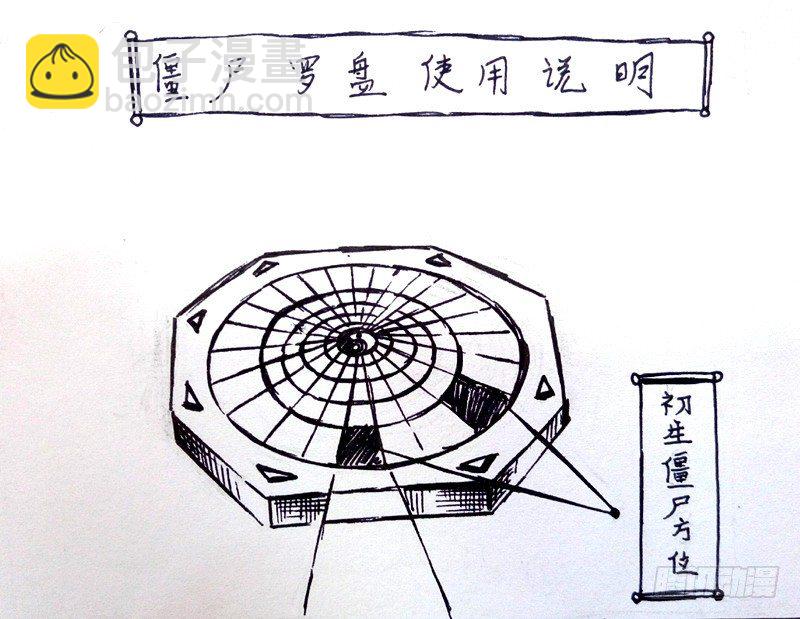 包子漫畫
baozimh.com
僵尸罗盘使用说明
初生僵尸方位